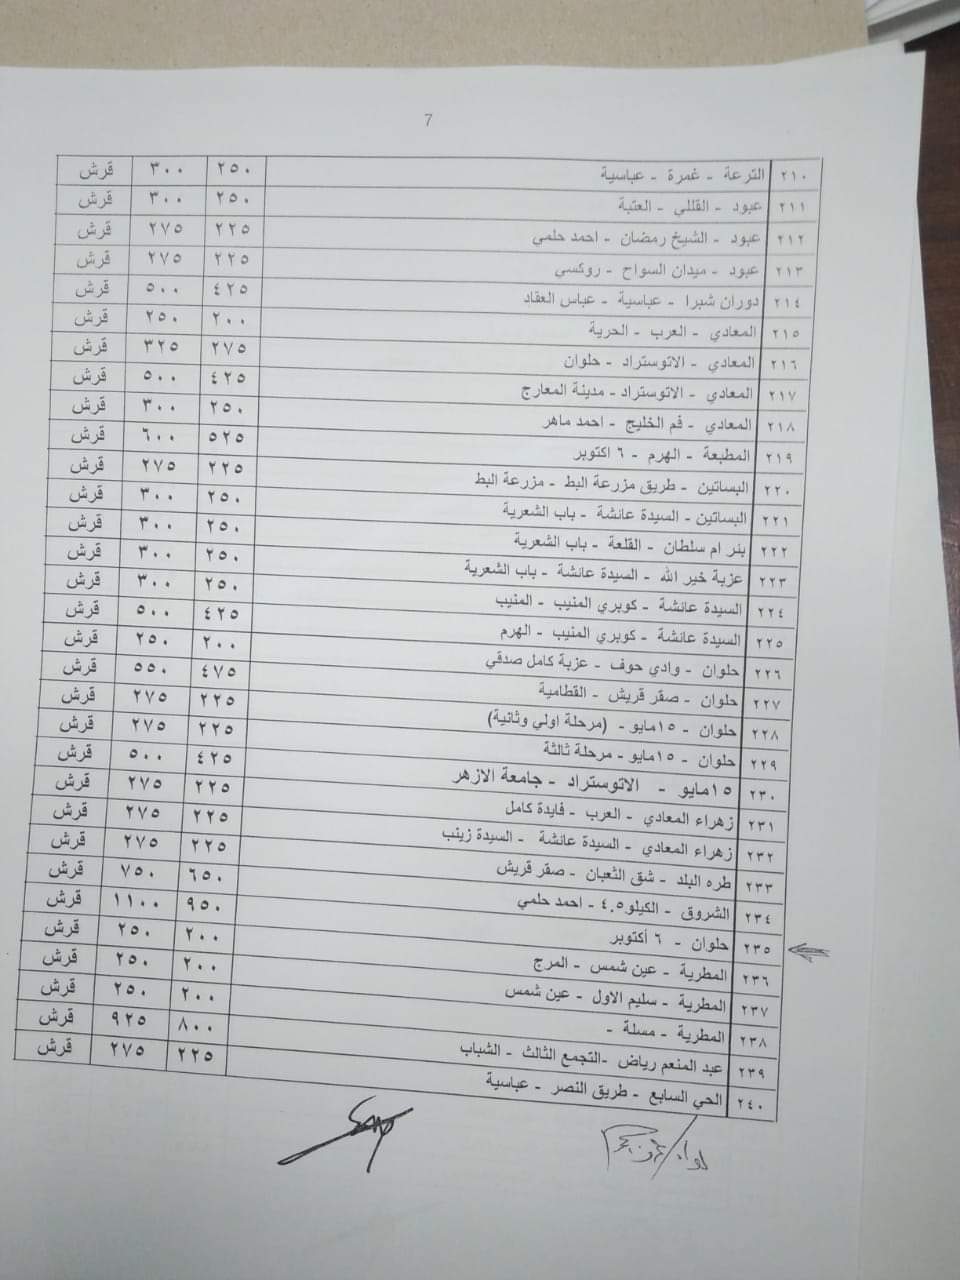 7
٢١٠ الترعة - غمرة - عباسية ٢٥٠ ٣٠٠ قرش
٢١١ عبود - القللي - العتبة ٢٥٠ ٣٠٠ قرش
٢١٢ عبود - الشيخ رمضان - احمد حلمي ٢٢٥ ٢٧٥ قرش
٢١٣ عبود - ميدان السواح - روكسي ٢٢٥ ٢٧٥ قرش
٢١٤ دوران شبرا - عباسية - عباس العقاد ٤٢٥ ٥٠٠ قرش
٢١٥ المعادي - العرب - الحرية ٢٠٠ ٢٥٠ قرش
٢١٦ المعادي - الاتوستراد - حلوان ٢٧٥ ٣٢٥ قرش
٢١٧ المعادي - الاتوستراد - مدينة المعارج ٤٢٥ ٥٠٠ قرش
٢١٨ المعادي - فم الخليج - احمد ماهر ٢٥٠ ٣٠٠ قرش
٢١٩ المطبعة - الهرم - ٦ اكتوبر ٥٢٥ ٦٠٠ قرش
٢٢٠ البساتين - طريق مزرعة البط - مزرعة البط ٢٢٥ ٢٧٥ قرش
٢٢١ البساتين - السيدة عائشة - باب الشعرية ٢٥٠ ٣٠٠ قرش
٢٢٢ بئر ام سلطان - القلعة - باب الشعرية ٢٥٠ ٣٠٠ قرش
٢٢٣ عزبة خير الله - السيدة عائشة - باب الشعرية ٢٥٠ ٣٠٠ قرش
٢٢٤ السيدة عائشة - كوبري المنيب - المنيب ٢٥٠ ٣٠٠ قرش
٢٢٥ السيدة عائشة - كوبري المنيب - الهرم ٤٢٥ ٥٠٠ قرش
٢٢٦ حلوان - وادي حوف - عزبة كامل صدقي ٢٠٠ ٢٥٠ قرش
٢٢٧ حلوان - صقر قريش - القطامية ٤٧٥ ٥٥٠ قرش
٢٢٨ حلوان - ١٥مايو - (مرحلة اولي وثانية) ٢٢٥ ٢٧٥ قرش
٢٢٩ حلوان - ١٥مايو - مرحلة ثالثة ٢٢٥ ٢٧٥ قرش
٢٣٠ ١٥مايو - الاتوستراد - جامعة الازهر ٤٢٥ ٥٠٠ قرش
٢٣١ زهراء المعادي - العرب - فايدة كامل ٢٢٥ ٢٧٥ قرش
٢٣٢ زهراء المعادي - السيدة عائشة - السيدة زينب ٢٢٥ ٢٧٥ قرش
٢٣٣ طره البلد - شق الثعبان - صقر قريش ٢٢٥ ٢٧٥ قرش
٢٣٤ الشروق - الكيلو٤.٥ - احمد حلمي ٦٥٠ ٧٥٠ قرش
٢٣٥ حلوان - ٦ أكتوبر ٩٥٠ ١١٠٠ قرش
٢٣٦ المطرية - عين شمس - المرج ٢٠٠ ٢٥٠ قرش
٢٣٧ المطرية - سليم الاول - عين شمس ٢٠٠ ٢٥٠ قرش
٢٣٨ المطرية - مسلة - ٢٠٠ ٢٥٠ قرش
٢٣٩ عبد المنعم رياض -التجمع الثالث - الشباب ٨٠٠ ٩٢٥ قرش
٢٤٠ الحي السابع - طريق النصر - عباسية ٢٢٥ ٢٧٥ قرش